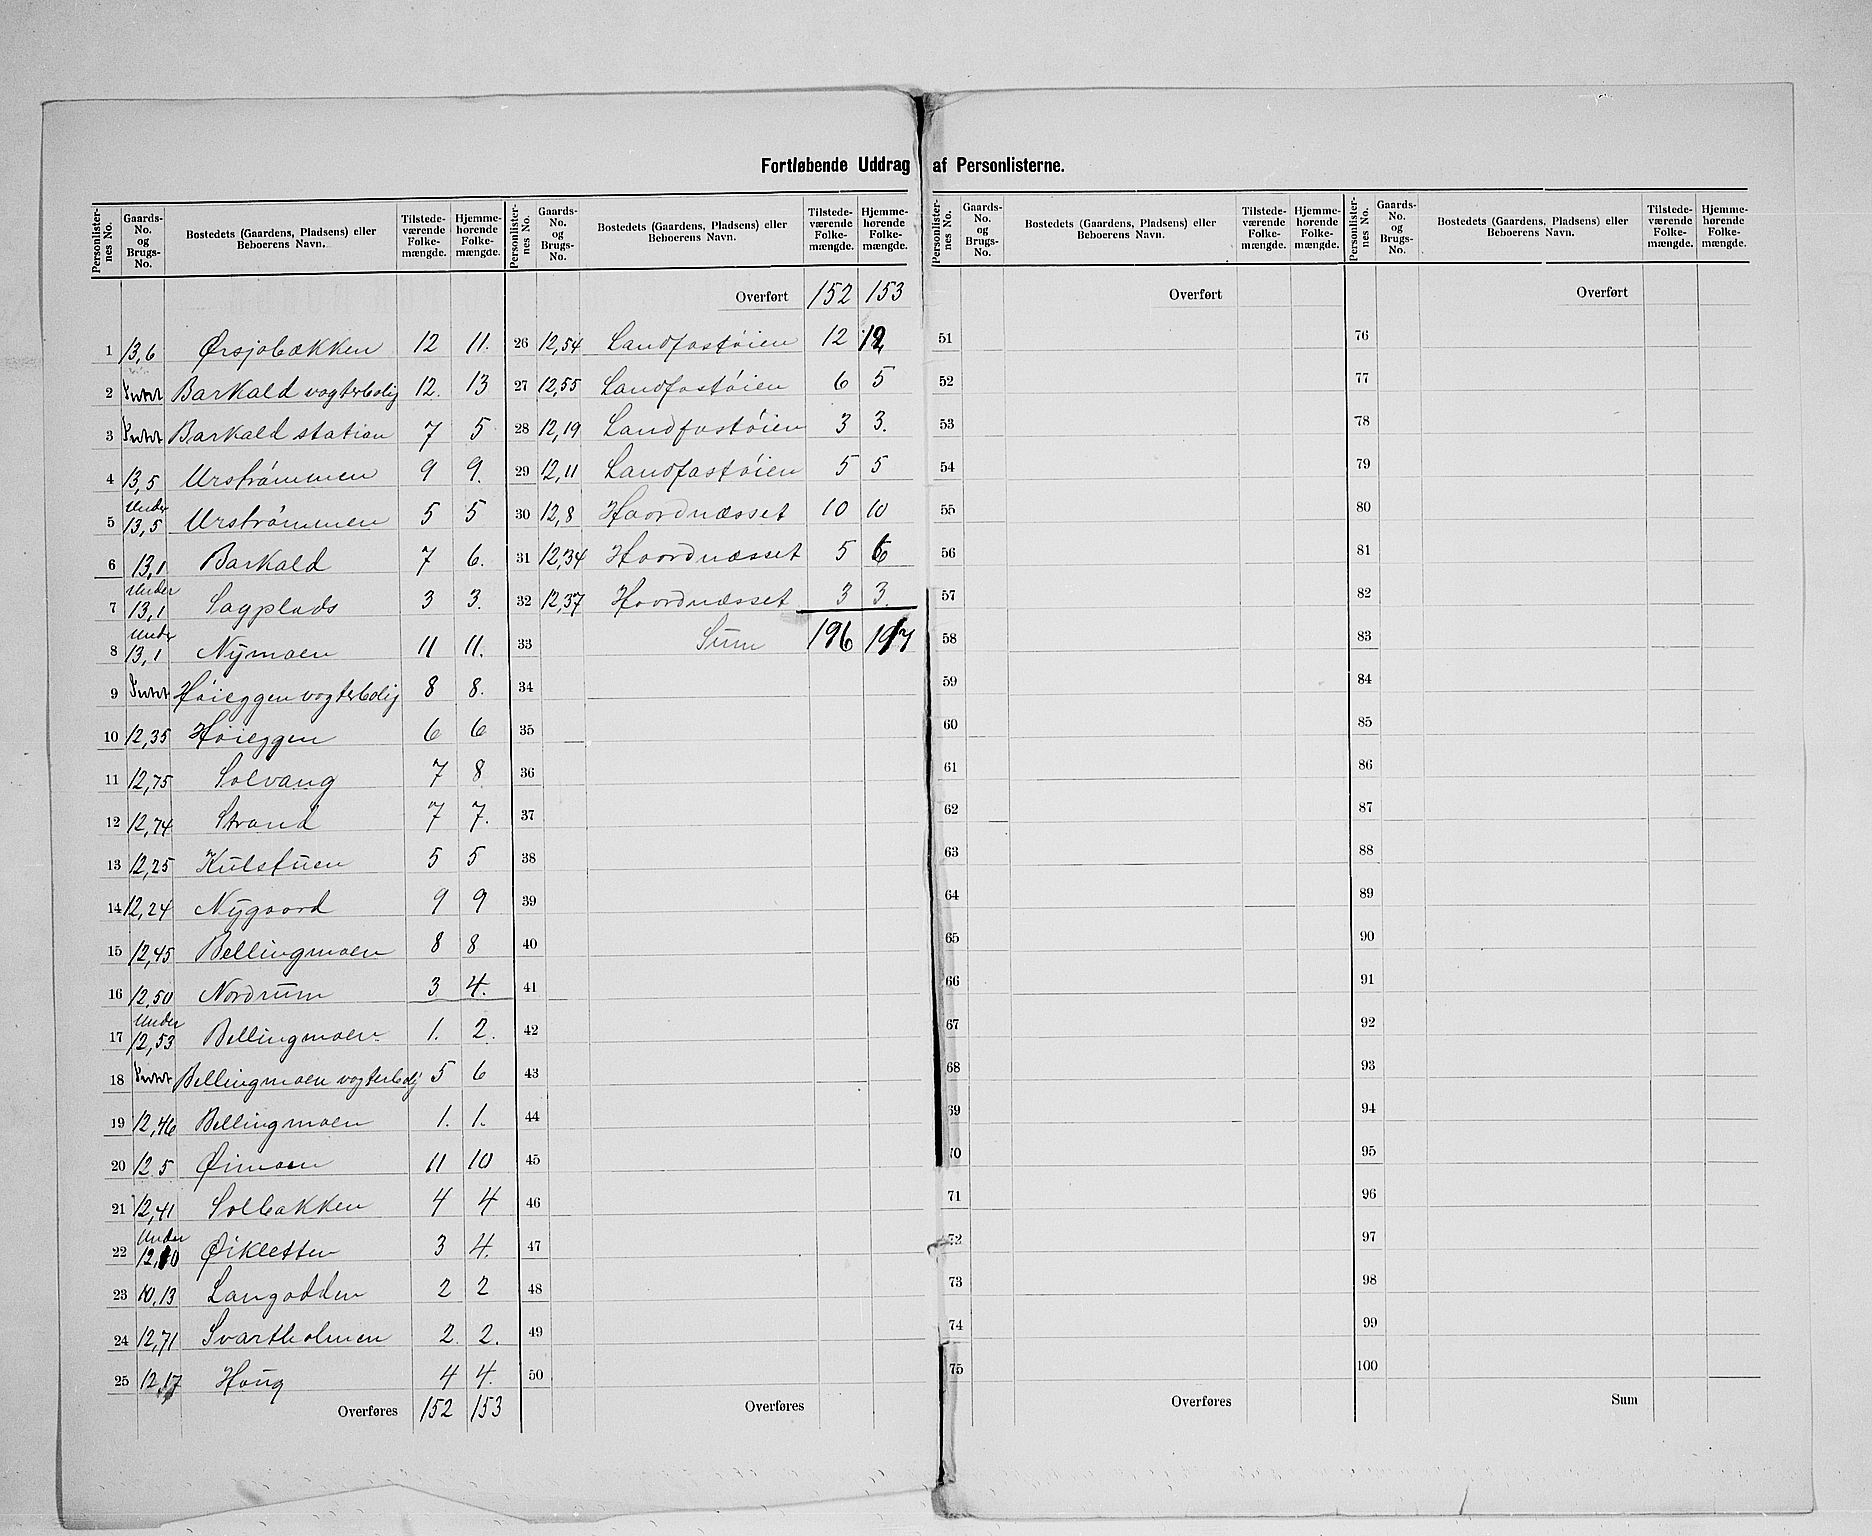 Fortløbende Uddrag af Personlisterne.
Personlister-nes No. Gaards-No. og Brugs-No. Bostedets (Gaardens, Pladsens) eller Beboerens Navn. Tilstede-værende Folke-mængde. Hjemme-hørende Folke-mængde.
1 13,6 Ørsjobækken 12 11.
2 Barkald vogterbolig 12. 13
3 Barkald station 7 5
4 13,5 Urstrømmen 9 9.
5 Under 13,5 Urstrømmen 5 5
6 13,1 Barkald 7 6.
7 Under 13,1 Sagplads 3 3.
8 Under 13,1 Nymoen 11 11.
9 Høieggen vogterbolig 8 8.
10 12,35 Høieggen 6 6
11 12,75 Solvang 7 8
12 12,74 Strand 7 7.
13 12,25 Kulstuen 5 5
14 12,24 Nygaard 9 9
15 12,45 Bellingmoen 8 8
16 12,50 Nordrum 3 4.
17 Under 12,53 Bellingmoen 1. 2.
18 Bellingmoen vogterbolig 5 6
19 12,46 Bellingmoen 1. 1.
20 12,5 Øimoen 11 10
21 12,41 Solbakken 4 4
22 Under 12,10 Øikletten 3 4.
23 10,13 Langodden 2 2
24 12,71 Svartholmen 2. 2.
25 12,17 Houg 4 4.
Overføres 152 153
Personlister-nes No. Gaards-No. og Brugs-No. Bostedets (Gaardens, Pladsens) eller Beboerens Navn. Tilstede-værende Folke-mængde. Hjemme-hørende Folke-mængde.
Overført 152 153
26 12,54 Landfastøien 12 12
27 12,55 Landfastøien 6 5
28 12,19 Landfastøien 3 3.
29 12,11 Landfastøien 5 5
30 12,8 Haardnæsset 10 10
31 12,34 Haardnæsset 5 6
32 12,37 Haardnæsset 3 3.
33 Sum 196 197
34
35
36
37
38
39
40
41
42
43
44
45
46
47
48
49
50
Overføres
Personlister-nes No. Gaards-No. og Brugs-No. Bostedets (Gaardens, Pladsens) eller Beboerens Navn. Tilstede-værende Folke-mængde. Hjemme-hørende Folke-mængde.
Overført
51
52
53
54
55
56
57
58
59
60
61
62
63
64
65
66
67
68
69
70
71
72
73
74
75
Overføres
Personlister-nes No. Gaards-No. og Brugs-No. Bostedets (Gaardens, Pladsens) eller Beboerens Navn. Tilstede-værende Folke-mængde. Hjemme-hørende Folke-mængde.
Overført
76
77
78
79
80
81
82
83
84
85
86
87
88
89
90
91
92
93
94
95
96
97
98
99
100
Sum